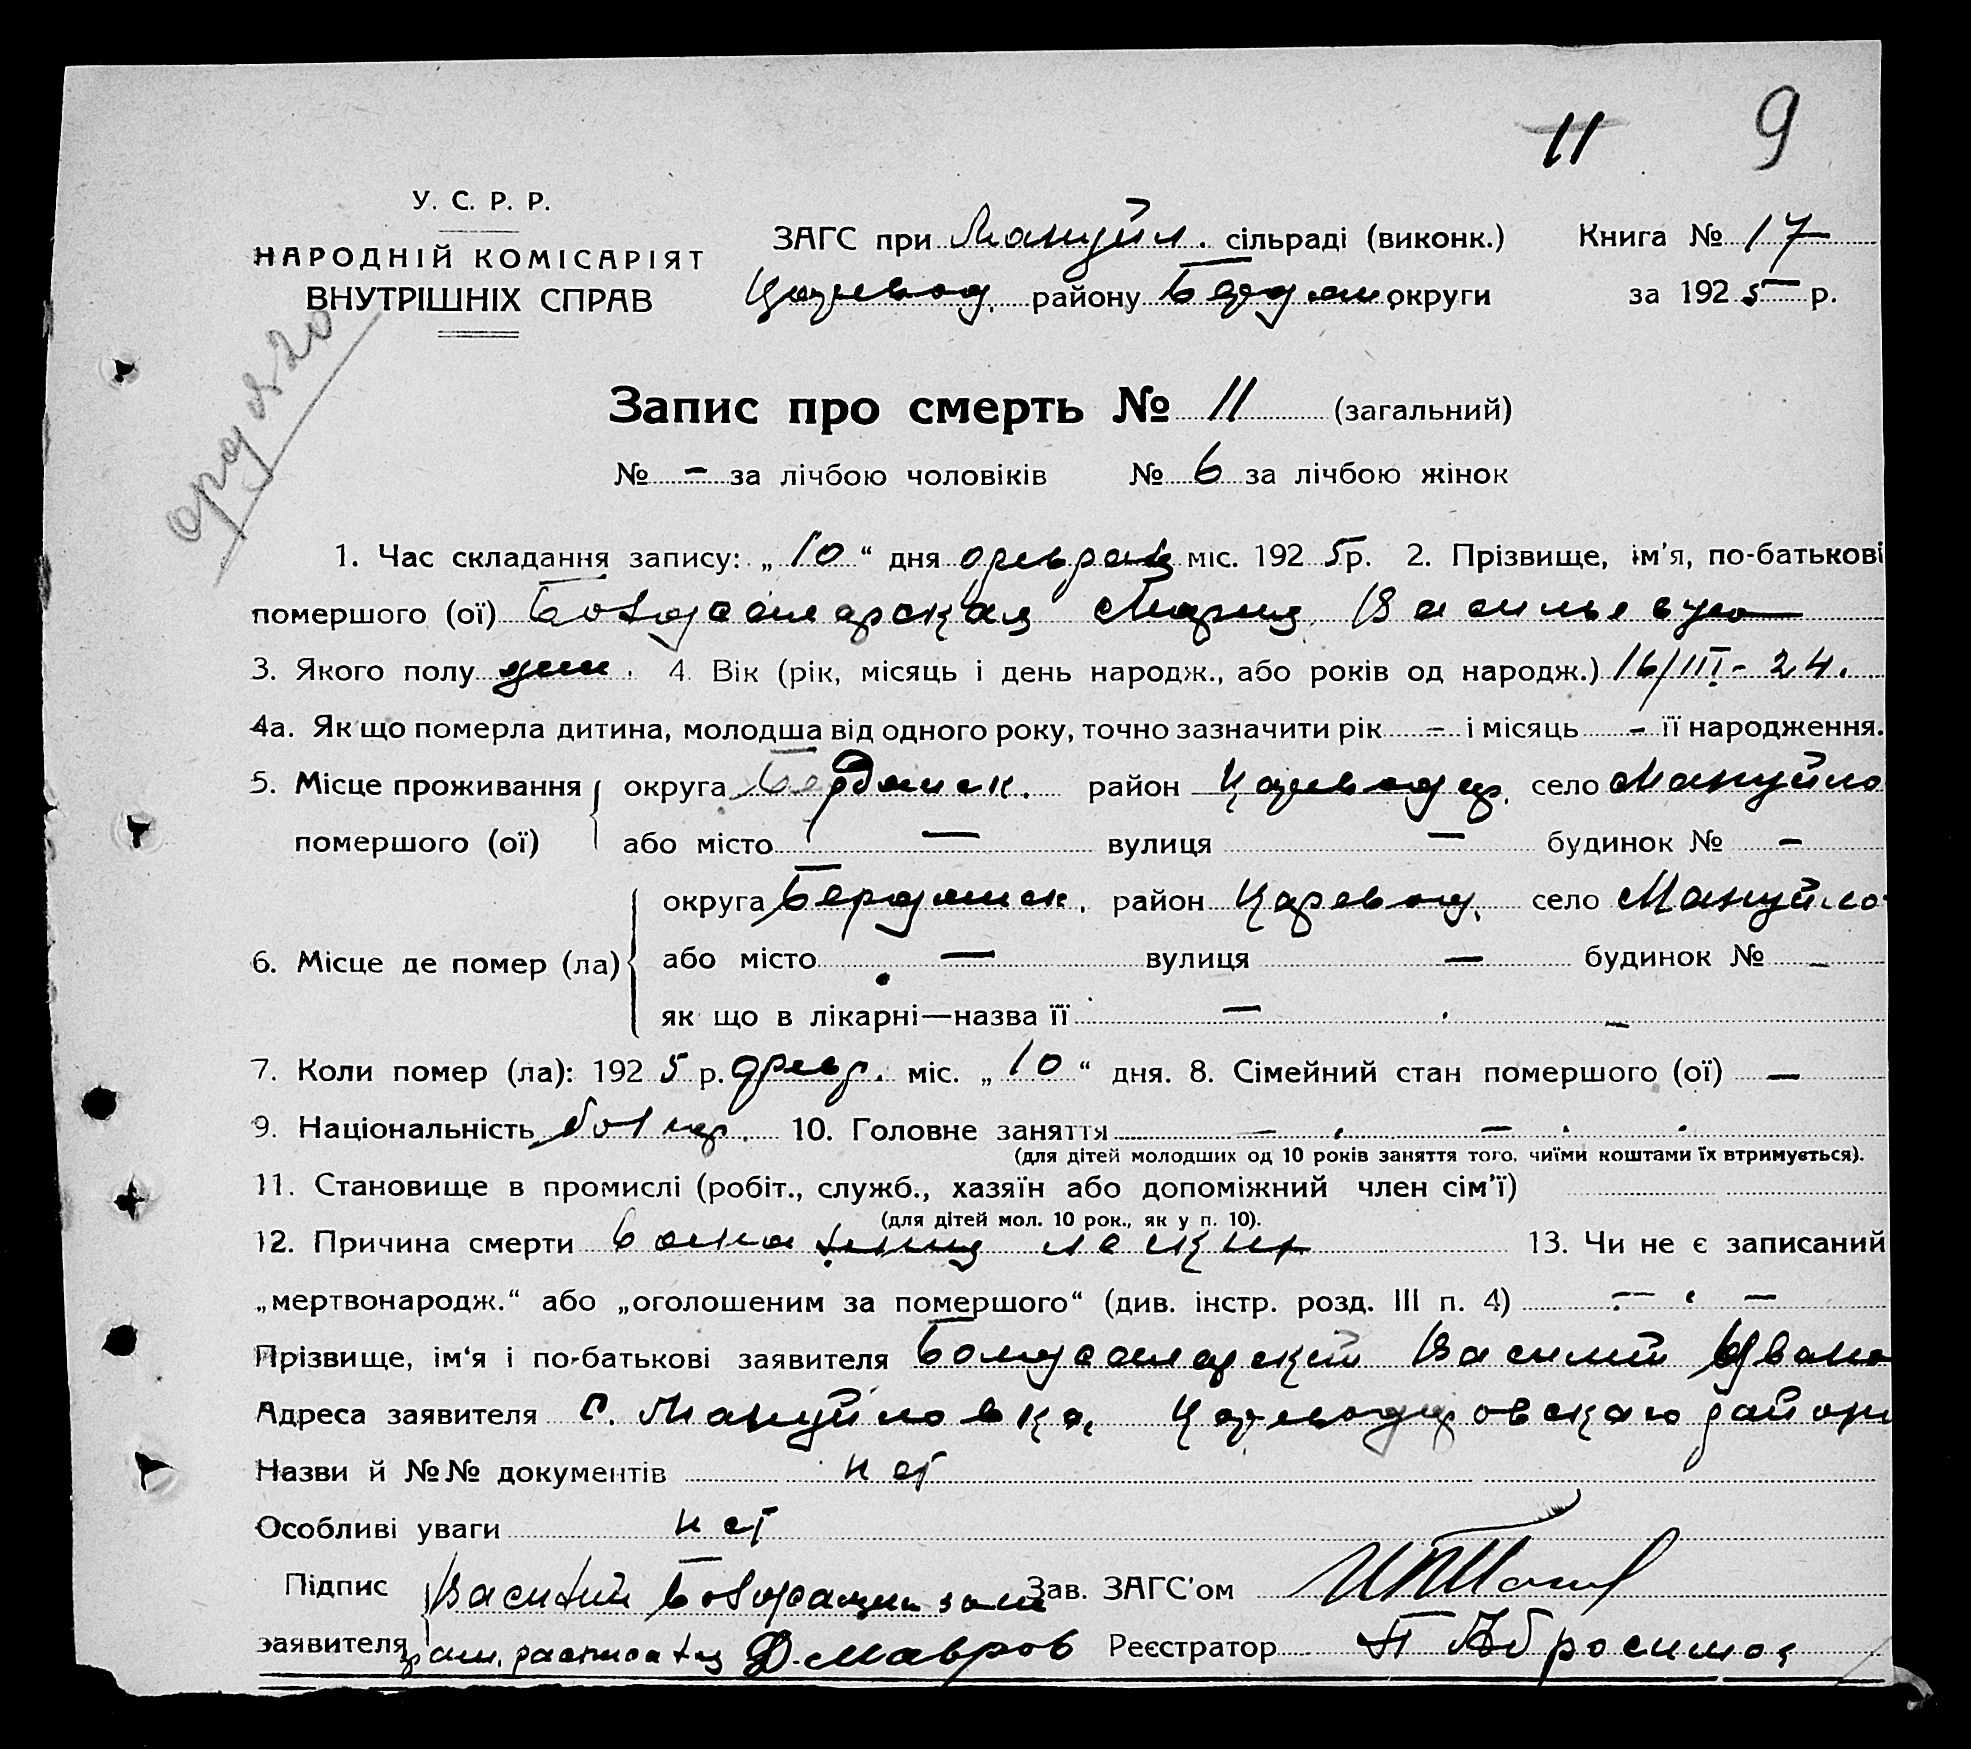 11 9
У. С. Р. Р.
НАРОДНІЙ КОМІСАРІЯТ
ВНУТРІШНІХ СПРАВ
ЗАГС при Мануйл. сільраді (виконк.) Книга № 17
Царевод. району Бердян округи за 1925 р.
Запис про смерть № 11 (загальний)
№ – за лічбою чоловіків № 6 за лічбою жінок
1. Час складання запису: „10“ дня февраля міс. 1925 р. 2. Прізвище, ім'я, по-батькові
помершого (ої) Мария Васильевна
3. Якого полу жен. 4. Вік (рік, місяць і день народж., або років од народж.) 16/III – 24.
4а. Як що померла дитина, молодша від одного року, точно зазначити рік – і місяць – її народження.
5. Місце проживання округа Бердянск. район Царевод село Мануйло
помершого (ої) або місто — вулиця — будинок № –
округа Бердянск. район Царевод. село Мануйло
6. Місце де помер (ла) або місто — вулиця — будинок № –
як що в лікарні—назва її — –
7. Коли помер (ла): 1925 р. февр. міс. „10“ дня. 8. Сімейний стан помершого (ої) —
9. Національність болгар. 10. Головне заняття – –
(для дітей молодших од 10 років заняття того, чиїми коштами їх втримується).
11. Становище в промислі (робіт., служб., хазяїн або допоміжний член сім'ї)
(для дітей мол. 10 рок., як у п. 10).
12. Причина смерти легких 13. Чи не є записаний
„мертвонародж.“ або „оголошеним за помершого“ (див. інстр. розд. III п. 4) – –
Прізвище, ім'я і по-батькові заявителя Василий Ивано
Адреса заявителя с. Мануйловка, Царевод района
Назви й №№ документів нет
Особливі уваги нет
Підпис Василий Зав. ЗАГС'ом
заявителя Д. Мавров Реєстратор П Абросимов